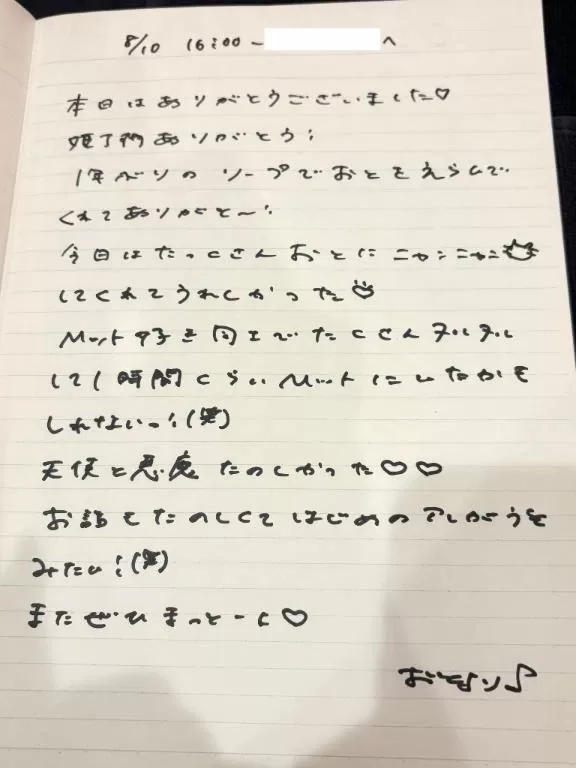 8/10 16:00~ へ
本日はありがとうございました♡
ありがとう!
1年ぶりのソープでおとをえらんで
くれてありがと〜!
今日はたっくさんおとにニャンニャン
してくれてうれしかった
マット好き同士でたくさんヌルヌル
して1時間くらいマットにいたかも
しれないっ!(笑)
天使と悪魔たのしかった♡♡
お話もたのしくてはじめの
みたい!(笑)
またぜひまっとーよ♡
おと♪